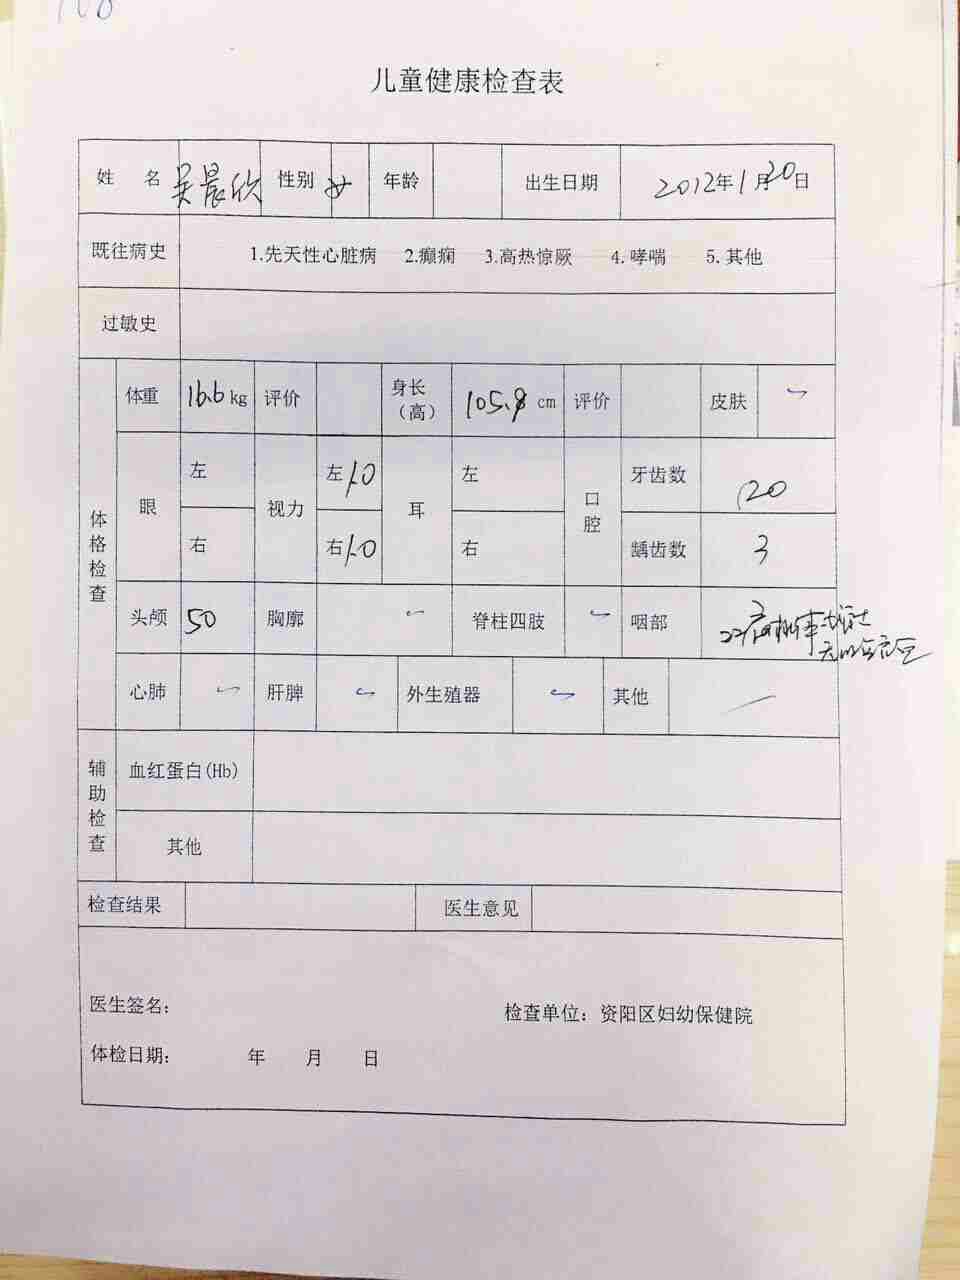 儿童健康检查表
姓 名 吴晨欣 性别 女 年龄 出生日期 2012年1月20日
既往病史 1.先天性心脏病 2.癫痫 3.高热惊厥 4.哮喘 5.其他
过敏史
体格检查
体重 16.6kg 评价 身长(高) 105.8cm 评价 皮肤
眼 左 右 视力 左1.0 右1.0 耳 左 右 口腔 牙齿数 20 龋齿数 3
头颅 50 胸廓 脊柱四肢 咽部
心肺 肝脾 外生殖器 其他
辅助检查
血红蛋白(Hb)
其他
检查结果 医生意见
医生签名: 检查单位: 资阳区妇幼保健院
体检日期: 年 月 日